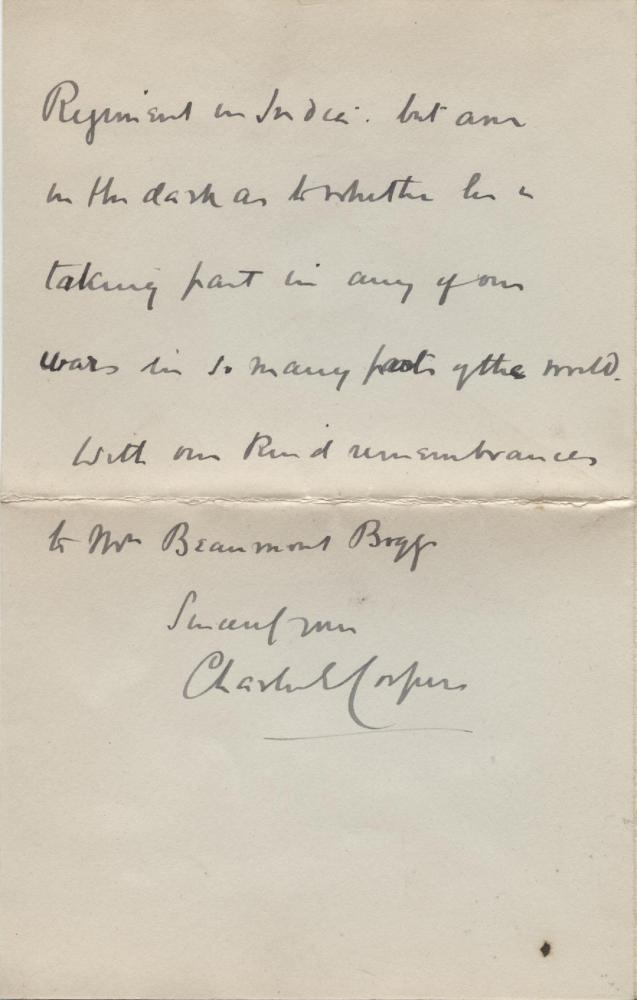 Regiment in India. but am
in the dark as to whether he is
taking part in any of our
wars in so many parts of the world.
With our kind remembrances
to Mrs Beaumont Boggs
Sincerely yours
Charles